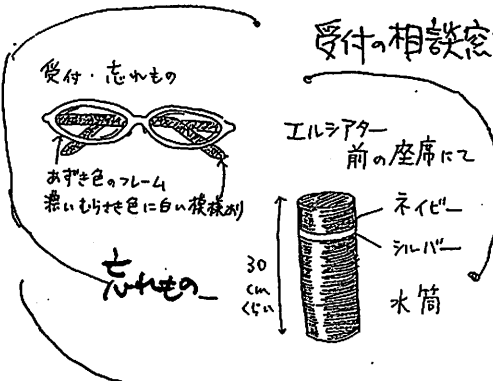 受付の相談窓
受付・忘れもの
あずき色のフレーム
濃いむらさき色に白い模様あり
エルシアター
前の座席にて
ネイビー
シルバー
30
cm
くらい
水筒
忘れもの